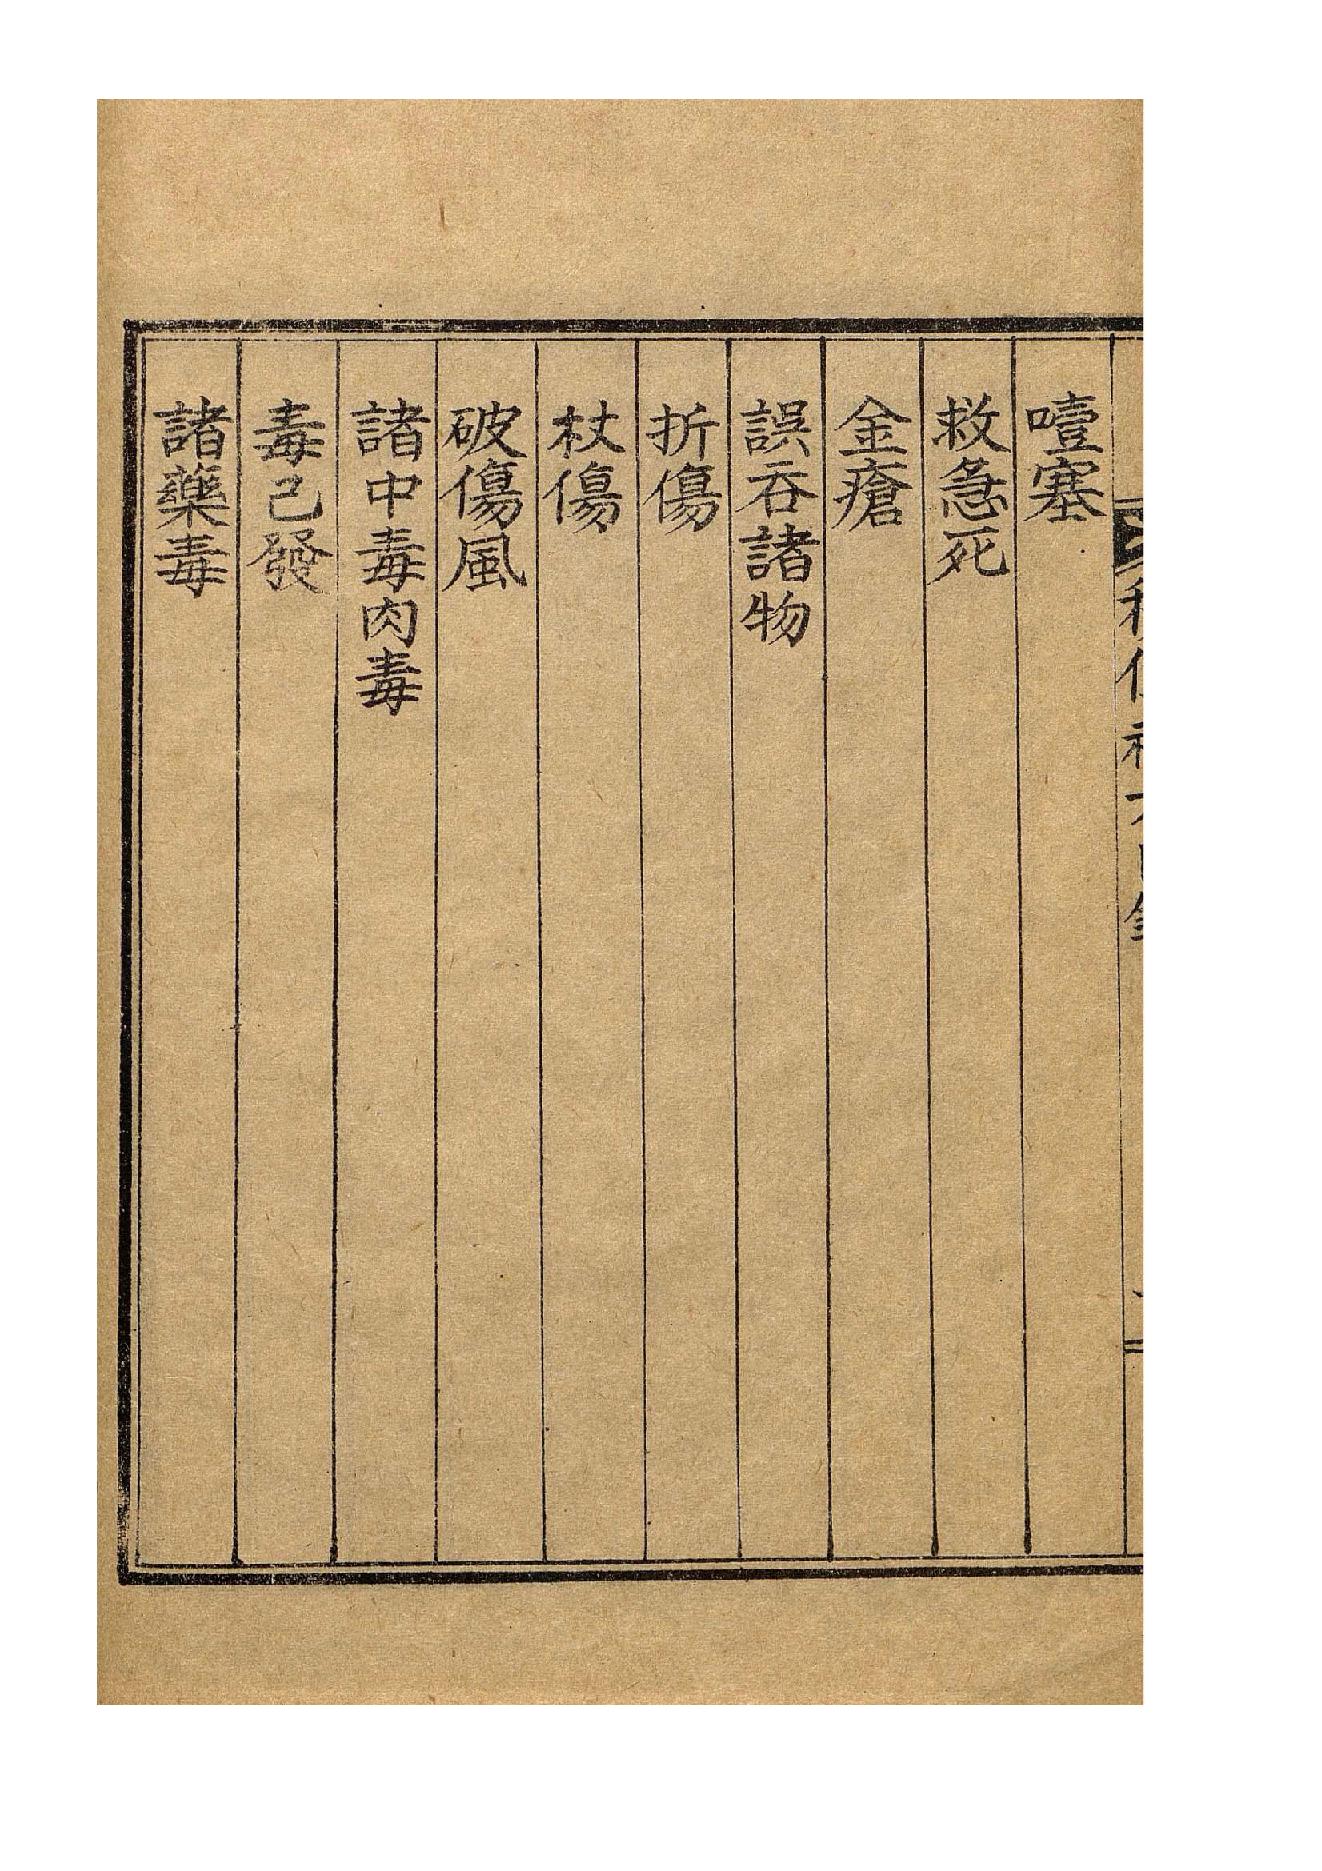 噎塞
救急死
金瘡
誤吞諸物
折傷
杖傷
破傷風
諸中毒肉毒
毒己發
諸藥毒